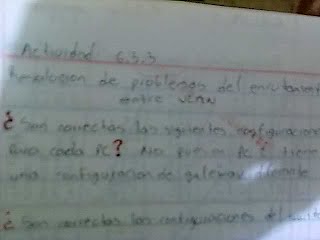 Actividad 6.3.3
Resolucion de problemas del enrutamient
entre VLAN
¿ Son correctas las siguientes configuracion
Para cada PC? No que en PC tiene
una configuracion de gateway diferente
¿ Son correctas las configuraciones del